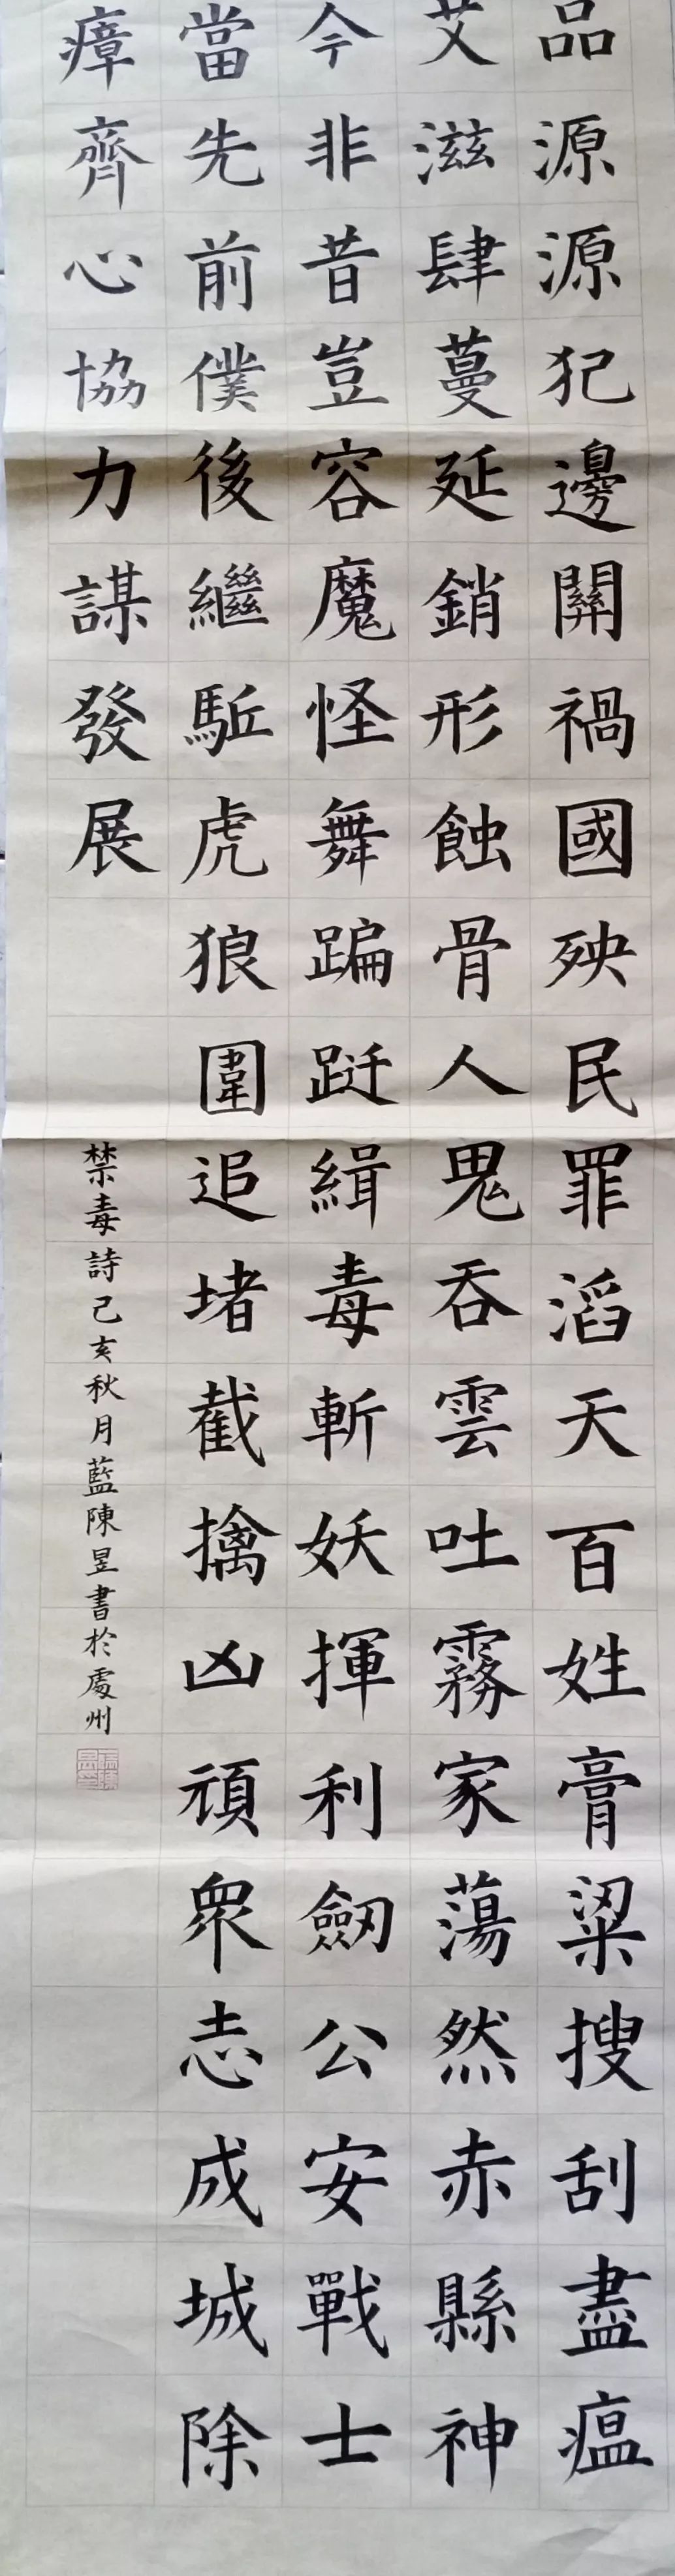 品源源犯邊關禍國殃民罪滔天百姓膏粱搜刮盡瘟
艾滋肆蔓延銷形蝕骨人鬼吞雲吐霧家蕩然赤縣神
今非昔豈容魔怪舞蹁跹緝毒斬妖揮利劒公安戰士
當先前僕後繼駈虎狼圍追堵截擒凶頑眾志成城除
瘴齊心協力謀發展
禁毒詩己亥秋月藍陳昱書於處州